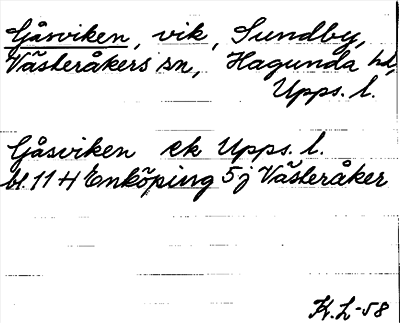 Gåsviken, vik, Sundby,
Västeråkers sn, Hagunda hd,
Upps. l.
Gåsviken ek Upps. l.
bl. 11 H Enköping 5j Västeråker
K. L-58